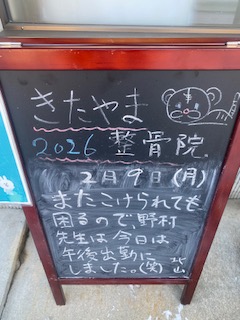 きたやま
2026 整骨院
2月9日(月)
またこけられても
困るので、野村
先生は今日は
午後出勤に
しました。(笑) 北山